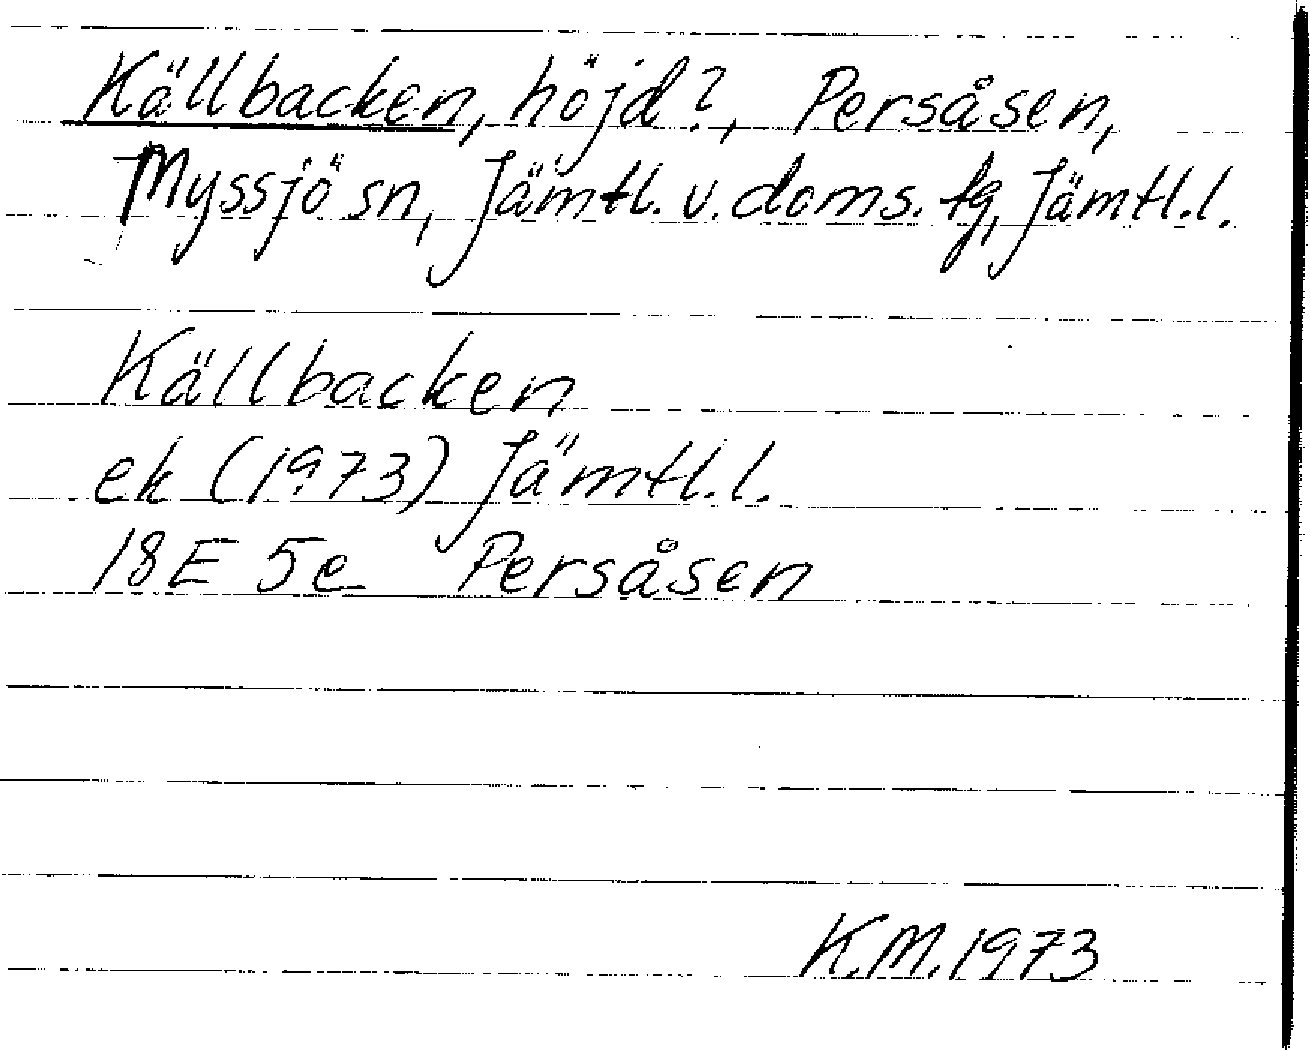 Källbacken, höjd?, Persåsen,
Myssjö sn, Jämtl. v. doms. tg, Jämtl.l.
Källbacken
ek (1973) Jämtl.l.
18E 5e Persåsen
K.M. 1973